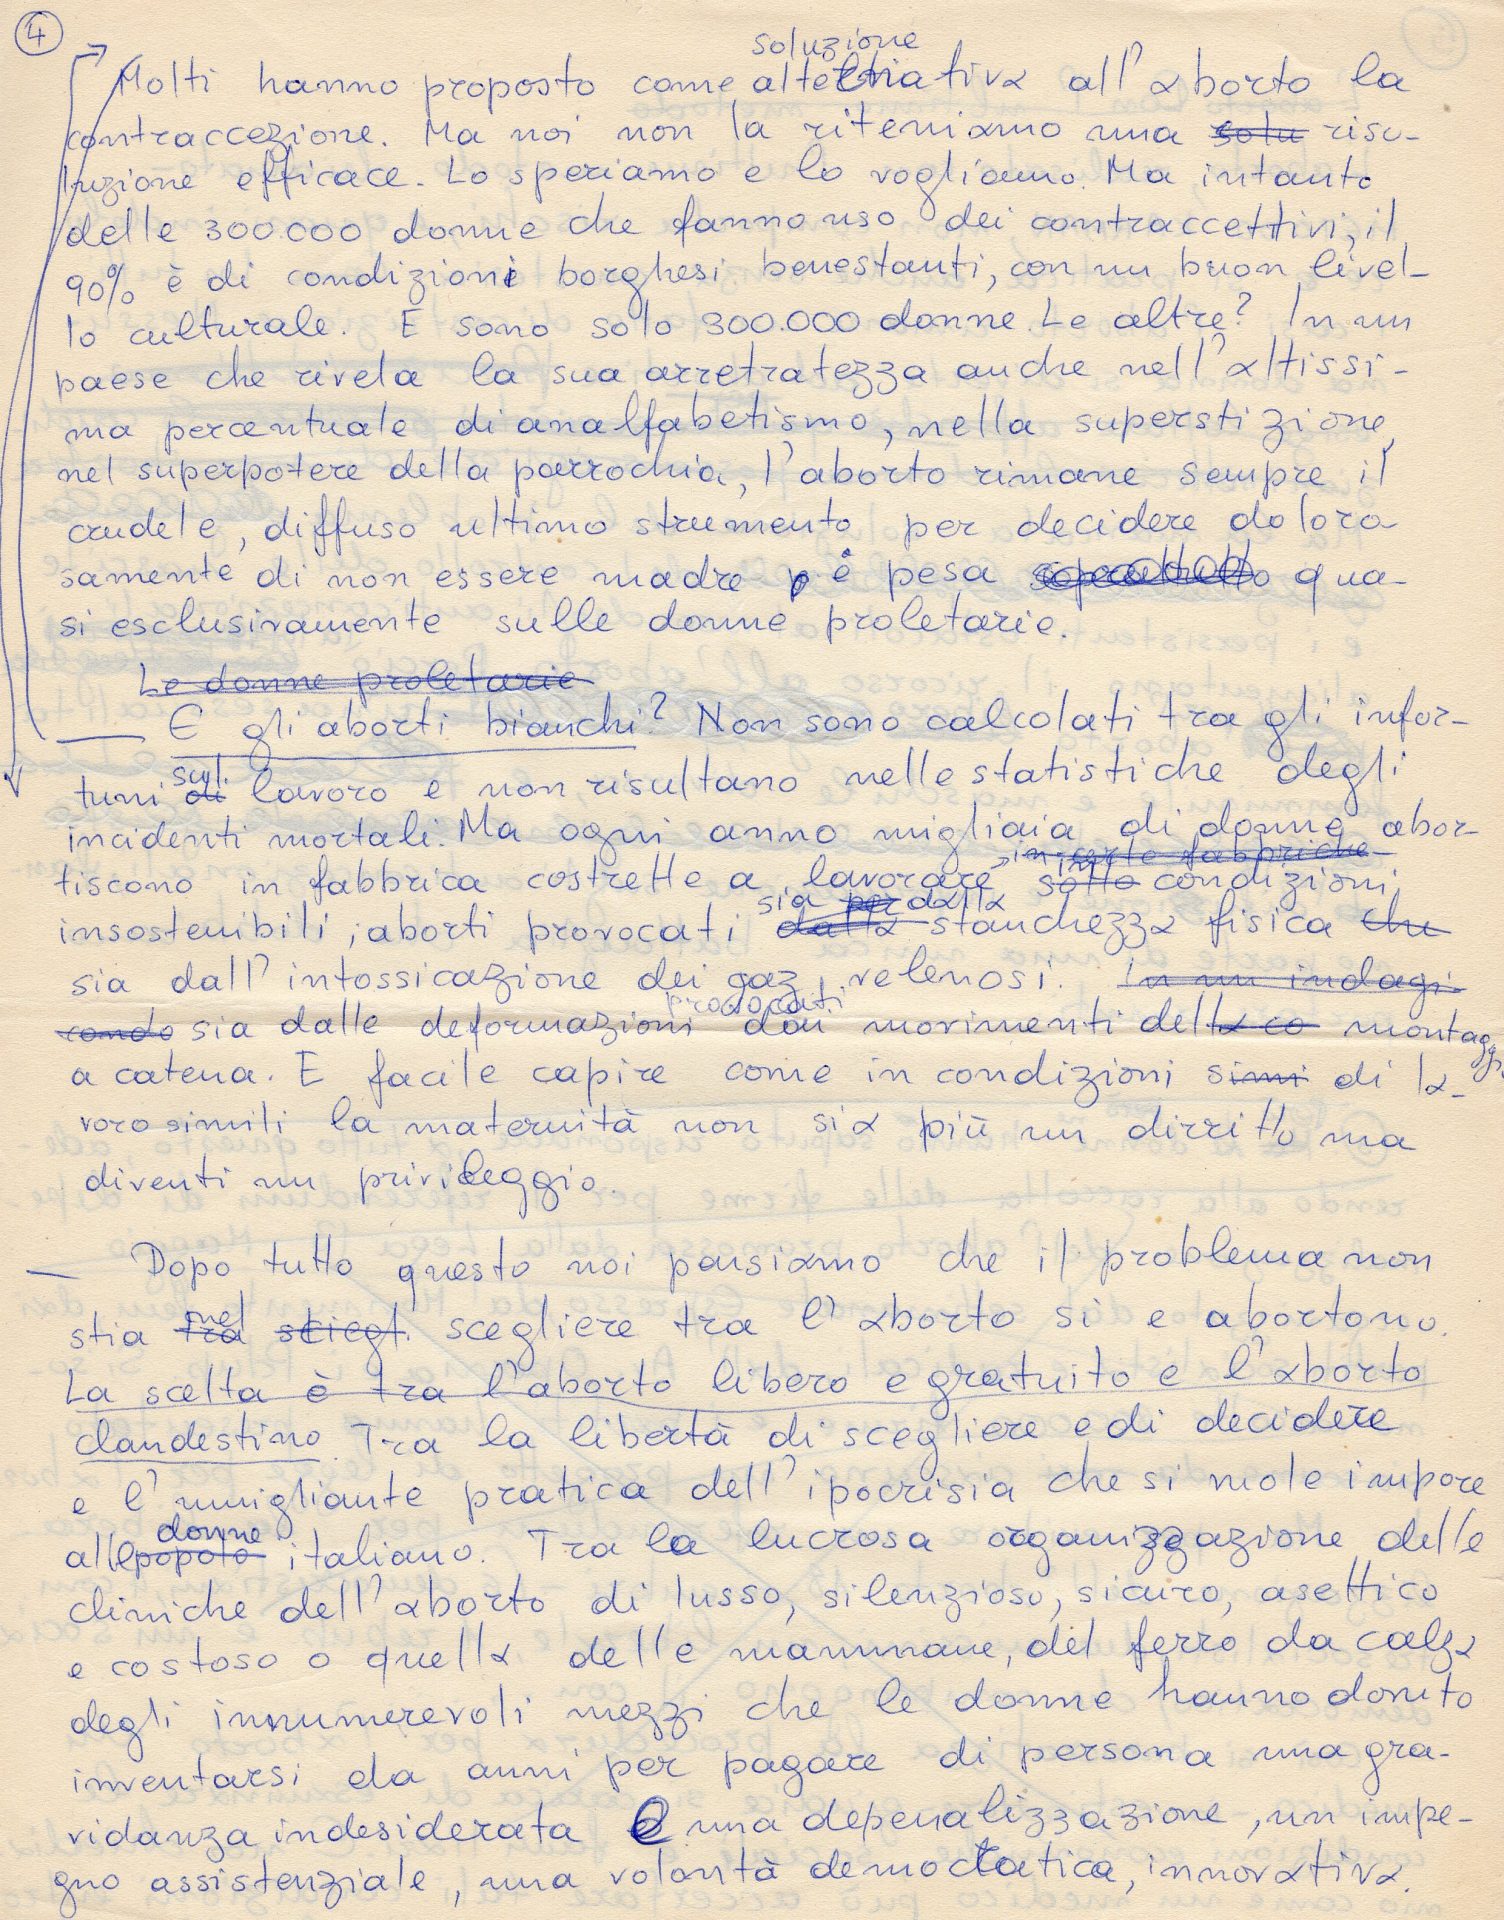 4
soluzione
Molti hanno proposto come alternativa all'aborto la
contraccezione. Ma noi non la riteniamo una solu riso-
luzione efficace. Lo speriamo e lo vogliamo. Ma intanto
delle 300.000 donne che fanno uso dei contraccettivi, il
90% è di condizioni borghesi benestanti, con un buon livel-
lo culturale. E sono solo 300.000 donne. Le altre? In un
paese che rivela la sua arretratezza anche nell'altissi-
ma percentuale di analfabetismo, nella superstizione,
nel superpotere della parrochia, l'aborto rimane sempre il
crudele, diffuso ultimo strumento per decidere doloro
samente di non essere madre e pesa soprattutto qua-
si esclusivamente sulle donne proletarie.
Le donne proletarie
— E gli aborti bianchi? Non sono calcolati tra gli infor-
tuni di sul lavoro e non risultano nelle statistiche degli
incidenti mortali. Ma ogni anno migliaia di donne abor-
in certe fabbriche
tiscono in fabbrica costrette a lavorare sotto in condizioni
sia per dalla
insostenibili, aborti provocati dalla stanchezza fisica che
sia dall'intossicazione dei gaz velenosi. In un indagi
provocati
condo sia dalle deformazioni dai movimenti della co montagg.
a catena. E facile capire come in condizioni simi di la-
voro simili la maternità non sia più un dirritto ma
diventi un privileggio.
— Dopo tutto questo noi pensiamo che il problema non
stia tra nel sciegl. scegliere tra l'aborto sì e aborto no.
La scelta è tra l'aborto libero e gratuito e l'aborto
clandestino. Tra la libertà di scegliere e di decidere
e l'umigliante pratica dell'ipocrisia che si vuole impore
donne
alle popolo italiano. Tra la lucrosa organizzazione delle
cliniche dell'aborto di lusso, silenzioso, sicuro, asettico
e costoso o quella delle mammane, del ferro da calza
degli innumerevoli mezzi che le donne hanno donuto
inventarsi da anni per pagare di persona una gra-
vidanza indesiderata e una depenalizzazione, un impe-
gno assistenziale, una volontà democratica, innovativa.